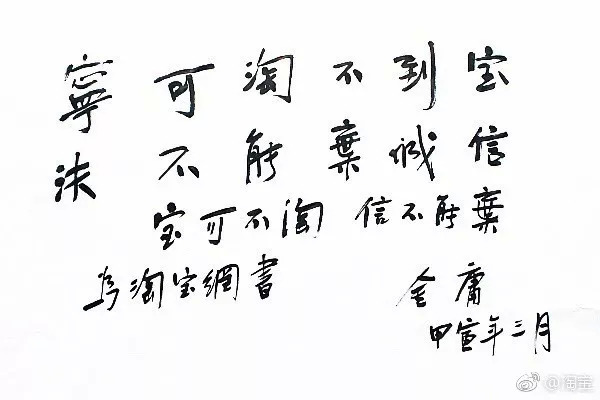 寧可淘不到宝
決不能棄誠信
宝可不淘 信不能棄
為淘宝網書
金庸
甲年三月
@淘宝